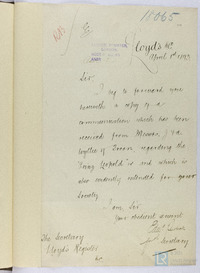 11065
Lloyd's
April 1st
Sir
I beg to forward you
herewith a copy of a
communication which has been
received from Messrs
Wyllie of Troon regarding the
"King Leopold" and which is
also evidently intended for your
Society
I am Sir
Your obedient servant
Secretary
The Secretary
Lloyds Register